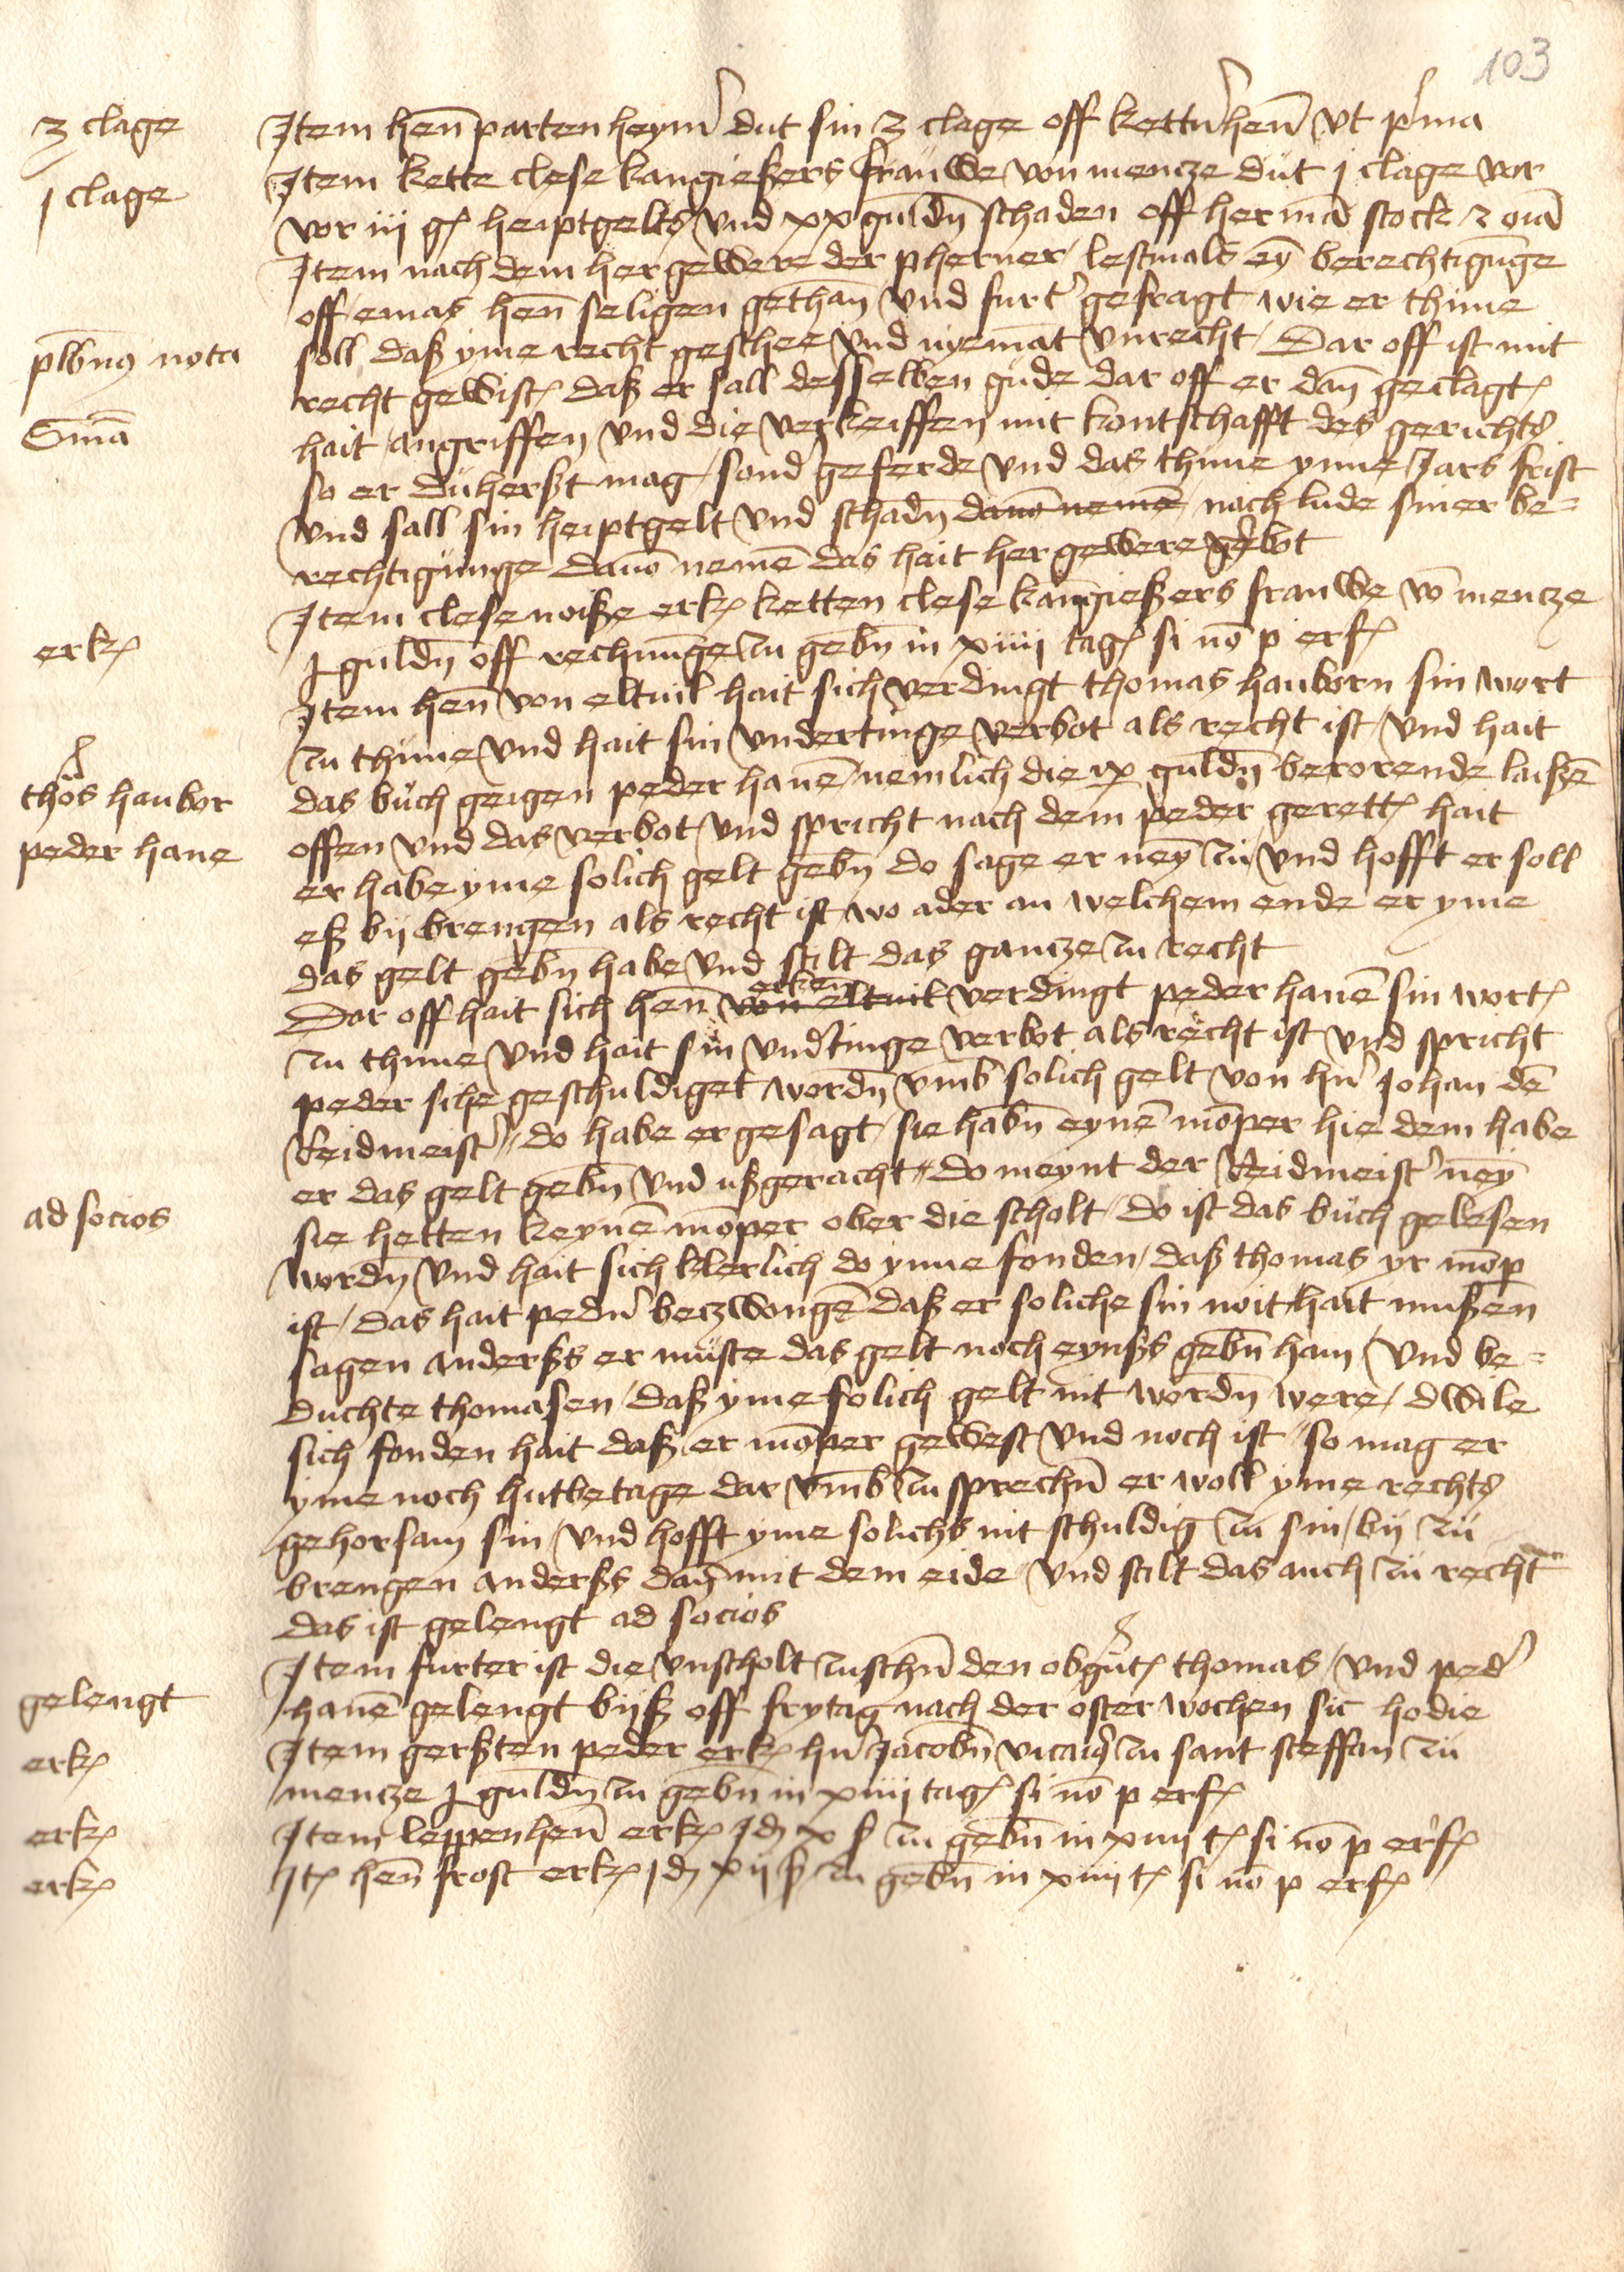 103
3 clage
Item hen̄ partenheym̉ dut sin 3 clage off kettn̉hen̄ vt p̉ma
j clage
Item kette clese kangießers frauwe von mencze dut j clage vor
vor iij gł heiptgelts vnd xx guldn̄ schaden off hermā stock z oīa
Item nach dem her gewere der pherner lestmals eȳ berechtigūnge
off emas hen̄ seligen gethan vnd furt̉ gefragt wie er thūne
plbn9 nota
soll daß yme recht geschee vnd nyemāt vnrecht Dar off ist mit
recht gewist daß er sall desselben gude dar off er dan̄ geclagt
Sniā
hait angriffen vnd die verkeiffen mit kontschafft des gerichts
so er duherßt mag sond̉ geferde vnd das thūne ynne Jars frist
vnd sall sin heiptgelt vnd schadn̄ dauō nemē nach lude siner be=
rechtigūnge dauō nemē das hait her gewere v̉bot
Item clese noiße erkē ketten clese kangießers frauwe vō mencze
erkē
j guldn̄ off rechnūnge zu gebn̄ in xiiij tagē si nō p erfē
Item hen̄ von eltuil hait sich verdingt thomas hanborn sin wort
zu thūne vnd hait sin vndertinge verbot als recht ist vnd hait
thōs hanbor
das buch geigen peder hanē nemlich die ix guldn̄ berorende laißē
peder hane
offen vnd das verbot vnd spricht nach dem peder gerett hait
er habe yme solich gelt gebn̄ do sage er neȳ zu vnd hofft er soll
eß bij brengen als recht ist wo ader an welchem ende er yme
das gelt gebn̄ habe vnd stilt das gancze zu recht
erken
Dar off hait sich hen̄ von eltuil verdingt peder hanē sin wort
zu thūne vnd hait sin vnd̉tinge verbot als recht ist vnd spricht
peder sihe geschuldiget wordn̄ vmb solich gelt von hn̉ Johan dē
Reidmeist̉ do habe er gesagt sie habn̄ eynē mōper hie dem habe
er das gelt gebn̄ vnd ußgeracht do meynt der Reidmeist̉ neȳ
ad socios
sie hetten keynē mōper ober die scholt do ist das buch gelesen
wordn̄ vnd hait sich klerlich do ynne fonden daß thomas yr mōp
ist das hait pedn̉ beczwongē daß er soliche sin noit hait mußen
sagen anderßs er muste das gelt noch eynßs gebn̄ han vnd be=
duchte thomasen daß yme solich gelt nit wordn̄ were dwile
sich fonden hait daß er mōper gewest vnd noch ist so mag er
yme noch hutbetage dar vmb zu sprechn̄ er woll yme rechts
gehorsam sin vnd hofft yme solichs nit schuldig zu sin bij zu
brengen anderßs dan̄ mit dem eide vnd stilt das auch zu recht
das ist gelengt ad socios
Item furter ist die vnscholt zuschn̄ den obgn̄t thomas vnd ped̉
gelengt
hanē gelengt biß off frytag nach der osterwochen sic hodie
Item gerßten peder erkē hn̉ Jacobn̄ vicaig zu sant steffan zu
erkē
mencze j guldn̄ zu gebn̄ in xiiij tagē si nō p erfē
erkē
Item leppenhen̄ erkē jdē x ß zu gebn̄ in xiiij tē si nō p erfē
erkē
Itē hen̄ frost erkē jdē xij ß zu gebn̄ in xiiij tē si nō p erfē